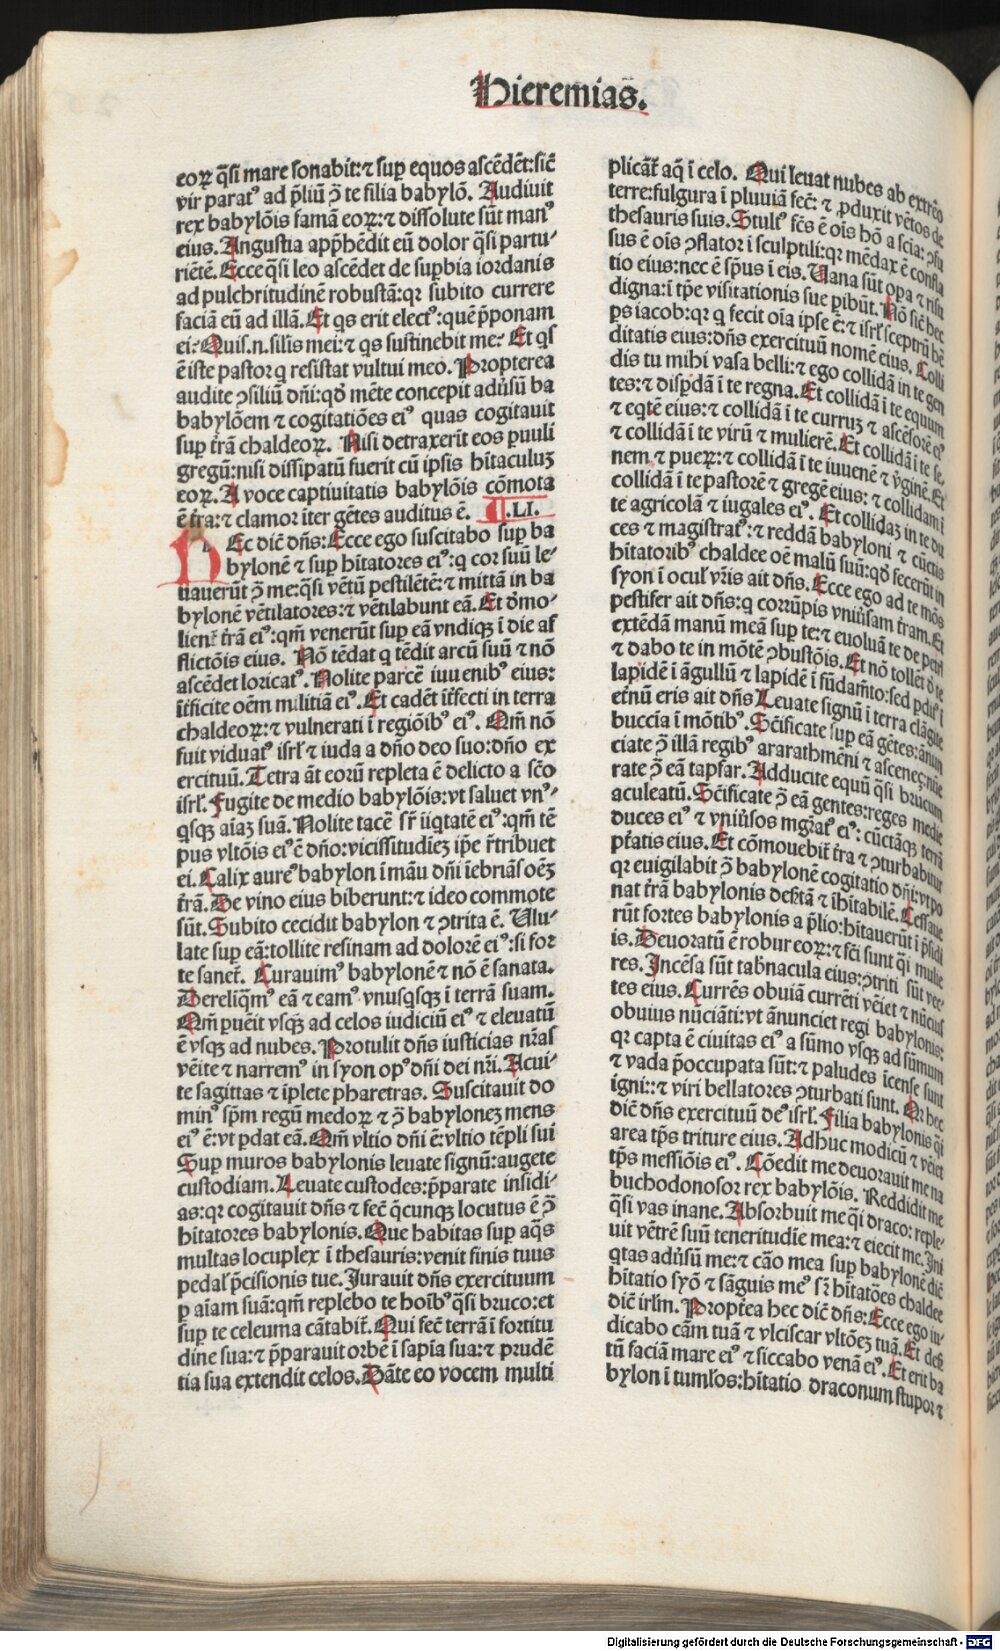 Hieremias.
eoꝝ q̄si mare sonabit:⁊ suꝑ equos ascēdēt:sic̄
vir paratꝰ ad p̄liū ↄ̄ te filia babylō. Audiuit
rex babylōis famā eoꝝ:⁊ dissolute sūt manꝰ
eius. Angustia app̄hēdit eū dolor q̄si partu⸗
riētē. Ecce q̄si leo ascēdet de suꝑbia iordanis
ad pulchritudinē robustā:qꝛ subito currere
faciā eū ad illā. Et qͥs erit electꝰ:quē p̄ponam
ei? Quis.n.silis mei:⁊ qͥs sustinebit me? Et qͥs
ē iste pastor q resistat vultui meo. Propterea
audite ↄsiliū dn̄i:qd̄ mēte concepit adūsū ba
babylōem ⁊ cogitatiōes eiꝰ quas cogitauit
suꝑ t̄rā chaldeoꝝ. Nisi detraxerit eos puuli
gregū:nisi dissipatū fuerit cū ipsis hītaculuꝫ
eoꝝ. A voce captiuitatis babylōis cōmota
ē t̄ra:⁊ clamor īter gētes auditus ē. ¶.LI.
HEc dic̄ dn̄s: Ecce ego suscitabo suꝑ ba
bylonē ⁊ suꝑ hītatores eiꝰ:q cor suū le⸗
uauerūt ↄ̄ me:q̄si vētū pestilētē:⁊ mittā in ba
bylonē vētilatores:⁊ vētilabunt eā. Et d̄mo⸗
lient̄ t̄rā eiꝰ:qm̄ venerūt suꝑ eā vndiqꝫ ī die af
flictōis eius. Nō tēdat q tēdit arcū suū ⁊ nō
ascēdet loricatꝰ. Nolite parcē iuuenibꝰ eius:
īt̄ficite oēm militiā eiꝰ. Et cadēt īt̄fecti in terra
chaldeoꝝ:⁊ vulnerati ī regiōibꝰ eiꝰ. Qm̄ nō
fuit viduatꝰ isrl̄ ⁊ iuda a dn̄o deo suo:dn̄o ex
ercituū. Tetra āt eorū repleta ē delicto a sc̄o
isrl̄. Fugite de medio babylōis:vt saluet vnꝰ⸗
qͥsqꝫ aīaꝫ suā. Nolite tacē sr̄ iīqtatē eiꝰ:qm̄ tē
pus vltōis eiꝰ ē dn̄o:vicissitudieꝫ ip̄e r̄tribuet
ei. Calix aureꝰ babylon ī māu dn̄i īebriās oēꝫ
t̄rā. De vino eius biberunt:⁊ ideo commote
sūt. Subito cecidit babylon ⁊ ↄtrita ē. Ulu⸗
late suꝑ eā:tollite resinam ad dolorē eiꝰ:si for
te sanet̄. Curauimꝰ babylonē ⁊ nō ē sanata.
Dereliqͥmꝰ eā ⁊ eamꝰ vnusqͥsqꝫ ī terrā suam.
Qm̄ puēit vsqꝫ ad celos iudiciū eiꝰ ⁊ eleuatū
ē vsqꝫ ad nubes. Protulit dn̄s iusticias nr̄as
vēite ⁊ narremꝰ in syon opꝰ dn̄i dei nr̄i. Acui⸗
te sagittas ⁊ īplete pharetras. Suscitauit do
minꝰ sp̄m regū medoꝝ ⁊ ↄ̄ babyloneꝫ mens
eiꝰ ē:vt ꝑdat eā. Qm̄ vltio dn̄i ē:vltio tēpli sui
Suꝑ muros babylonis leuate signū:augete
custodiam. Leuate custodes:p̄parate insidi⸗
as:qꝛ cogitauit dn̄s ⁊ fec̄ q̄cunqꝫ locutus ē ↄ̄
hītatores babylonis. Que habitas suꝑ aq̄s
multas locuplex ī thesauris:venit finis tuus
pedal̓ p̄cisionis tue. Jurauit dn̄s exercituum
ꝑ aīam suā:qm̄ replebo te hoībꝰ q̄si bruco:et
suꝑ te celeuma cātabit̄. Qui fec̄ terrā ī fortitu
dine sua:⁊ p̄parauit orbē ī sapīa sua:⁊ prudē
tia sua extendit celos. Dāte eo vocem multi
plicāt̄ aq̄ ī celo. Qui leuat nubes ab extrēo
terre:fulgura ī pluuiā fec̄: ⁊ ꝓduxit vētos de
thesauris suis. Stultꝰ fc̄s ē oīs hō a scīa: ↄfu
sus ē oīs ↄflator ī sculptili:qꝛ mēdax ē confla
tio eius:nec ē sp̄us ī eis. Uana sūt oꝑa ⁊ risu
digna:ī tp̄e visitationis sue ꝑibūt. Nō sic̄ hec
ꝑs iacob:qꝛ q fecit oīa ipse ē:⁊ isrl̄ sceptrū hē
ditatis eius:dn̄s exercituū nomē eius. Colli
dis tu mihi vasa belli:⁊ ego collidā in te gen
tes:⁊ disꝑdā ī te regna. Et collidā ī te equum
⁊ eqͥtē eius:⁊ collidā ī te curruꝫ ⁊ ascēsorē eꝰ
⁊ collidā ī te virū ⁊ mulierē. Et collidā ī te se⸗
nem ⁊ pueꝝ:⁊ collidā ī te iuuenē ⁊ ꝟginē. Et
collidā ī te pastorē ⁊ gregē eius: ⁊ collidam ī
te agricolā ⁊ iugales eiꝰ. Et collidaꝫ in te du
ces ⁊ magistratꝰ:⁊ reddā babyloni ⁊ cūctis
hītatoribꝰ chaldee oē malū suū:qd̄ fecerūt in
syon ī oculꝭ vr̄is ait dn̄s. Ecce ego ad te mōs
pestifer ait dn̄s:q corrūpis vniūsam t̄ram. Et
extēdā manū meā suꝑ te:⁊ euoluā te de petrꝭ
⁊ dabo te in mōtē ↄbustōis. Et nō tollēt d̄ te
lapidē ī āgullū ⁊ lapidē ī fūdam̄to:sed ꝑditꝰ ī
et̄nū eris ait dn̄s Leuate signū ī terra clāgite
buccia ī mōtibꝰ. Sc̄ificate suꝑ eā gētes:ānun
ciate ↄ̄ illā regibꝰ ararathmēni ⁊ asceneꝫ:nūe
rate ↄ̄ eā tapsar. Adducite equū q̄si brucum
aculeatū. Sc̄ificate ↄ̄ eā gentes:reges medie
duces eiꝰ ⁊ vniūsos mgr̄atꝰ eiꝰ: cūctāqꝫ terrā
pt̄atis eius. Et cōmouebit̄ t̄ra ⁊ ↄturbabitur
qꝛ euigilabit ↄ̄ babylonē cogitatio dn̄i:vt po
nat t̄rā babylonis deſ̄tā ⁊ īhītabilē. Cessaue
rūt fortes babylonis a p̄lio:hītauerūt ī p̄sidi
is. Deuoratū ē robur eoꝝ:⁊ fc̄i sunt q̄i mulie
res. Jncēsa sūt tab̄nacula eius:ↄtriti sūt vec⸗
tes eius. Currēs obuiā currēti vēiet ⁊ nūcius
obuius nūciāti:vt ānunciet regi babylonis:
qꝛ capta ē ciuitas eiꝰ a sūmo vsqꝫ ad sūmum
⁊ vada p̄occupata sūt:⁊ paludes īcense sunt
igni:⁊ viri bellatores ↄturbati sunt. Qꝛ hec
dic̄ dn̄s exercituū deꝰ isrl̄. Filia babylonis q̄i
area tp̄s triture eius. Adhuc modicū ⁊ vēiet
tp̄s messiōis eiꝰ. Cōedit me deuorauit me na
buchodonosor rex babylōis. Reddidit me
q̄si vas inane. Absorbuit me q̄i draco: reple⸗
uit vētrē suū teneritudīe mea:⁊ eiecit me. Jni
qtas adūsū me:⁊ cāo mea suꝑ babylonē dic̄
hītatio syō ⁊ sāguis meꝰ sr̄ hītatōes chaldee
dic̄ irlm̄. Propt̄ea hec dic̄ dn̄s:Ecce ego iu⸗
dicabo cām tuā ⁊ vlciscar vltōeꝫ tuā. Et deſ̄
tū faciā mare eiꝰ ⁊ siccabo venā eiꝰ. Et erit ba
bylon ī tuml̓os:hītatio draconum stupor ⁊
Digitalisierung gefördert durch die Deutsche Forschungsgemeinschaft - DFG